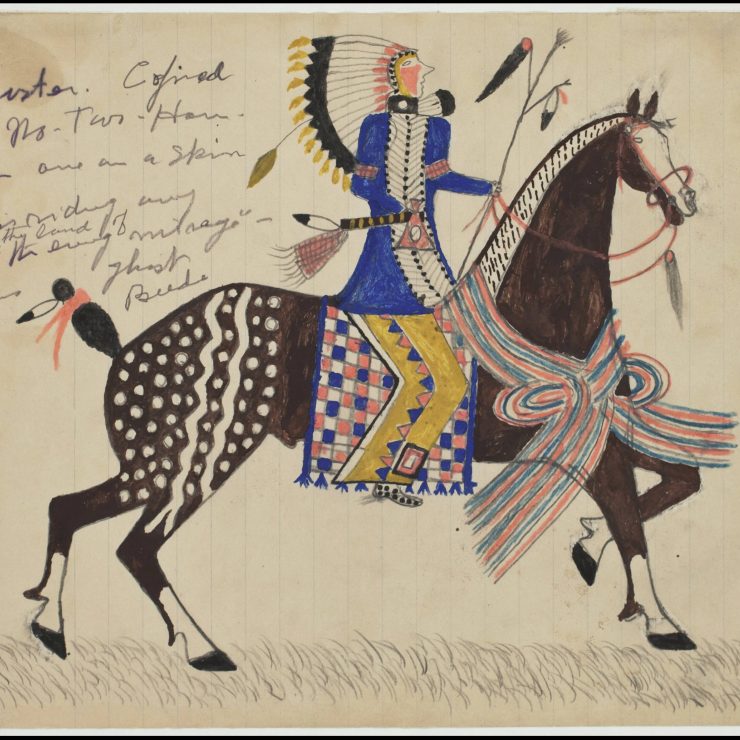 uster. Copied
No-Two-Horn-
one on a Skin
riding away
the land of
the enemy "mirage" -
ghost
Beede